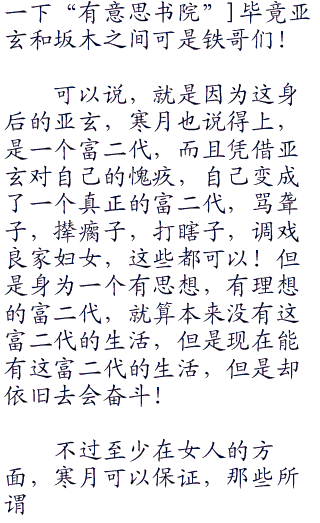 一下“有意思书院”]毕竟亚
玄和坂木之间可是铁哥们！
可以说，就是因为这身
后的亚玄，寒月也说得上，
是一个富二代，而且凭借亚
玄对自己的愧疚，自己变成
了一个真正的富二代，骂聋
子，撵瘸子，打瞎子，调戏
良家妇女，这些都可以！但
是身为一个有思想，有理想
的富二代，就算本来没有这
富二代的生活，但是现在能
有这富二代的生活，但是却
依旧去会奋斗！
不过至少在女人的方
面，寒月可以保证，那些所
谓